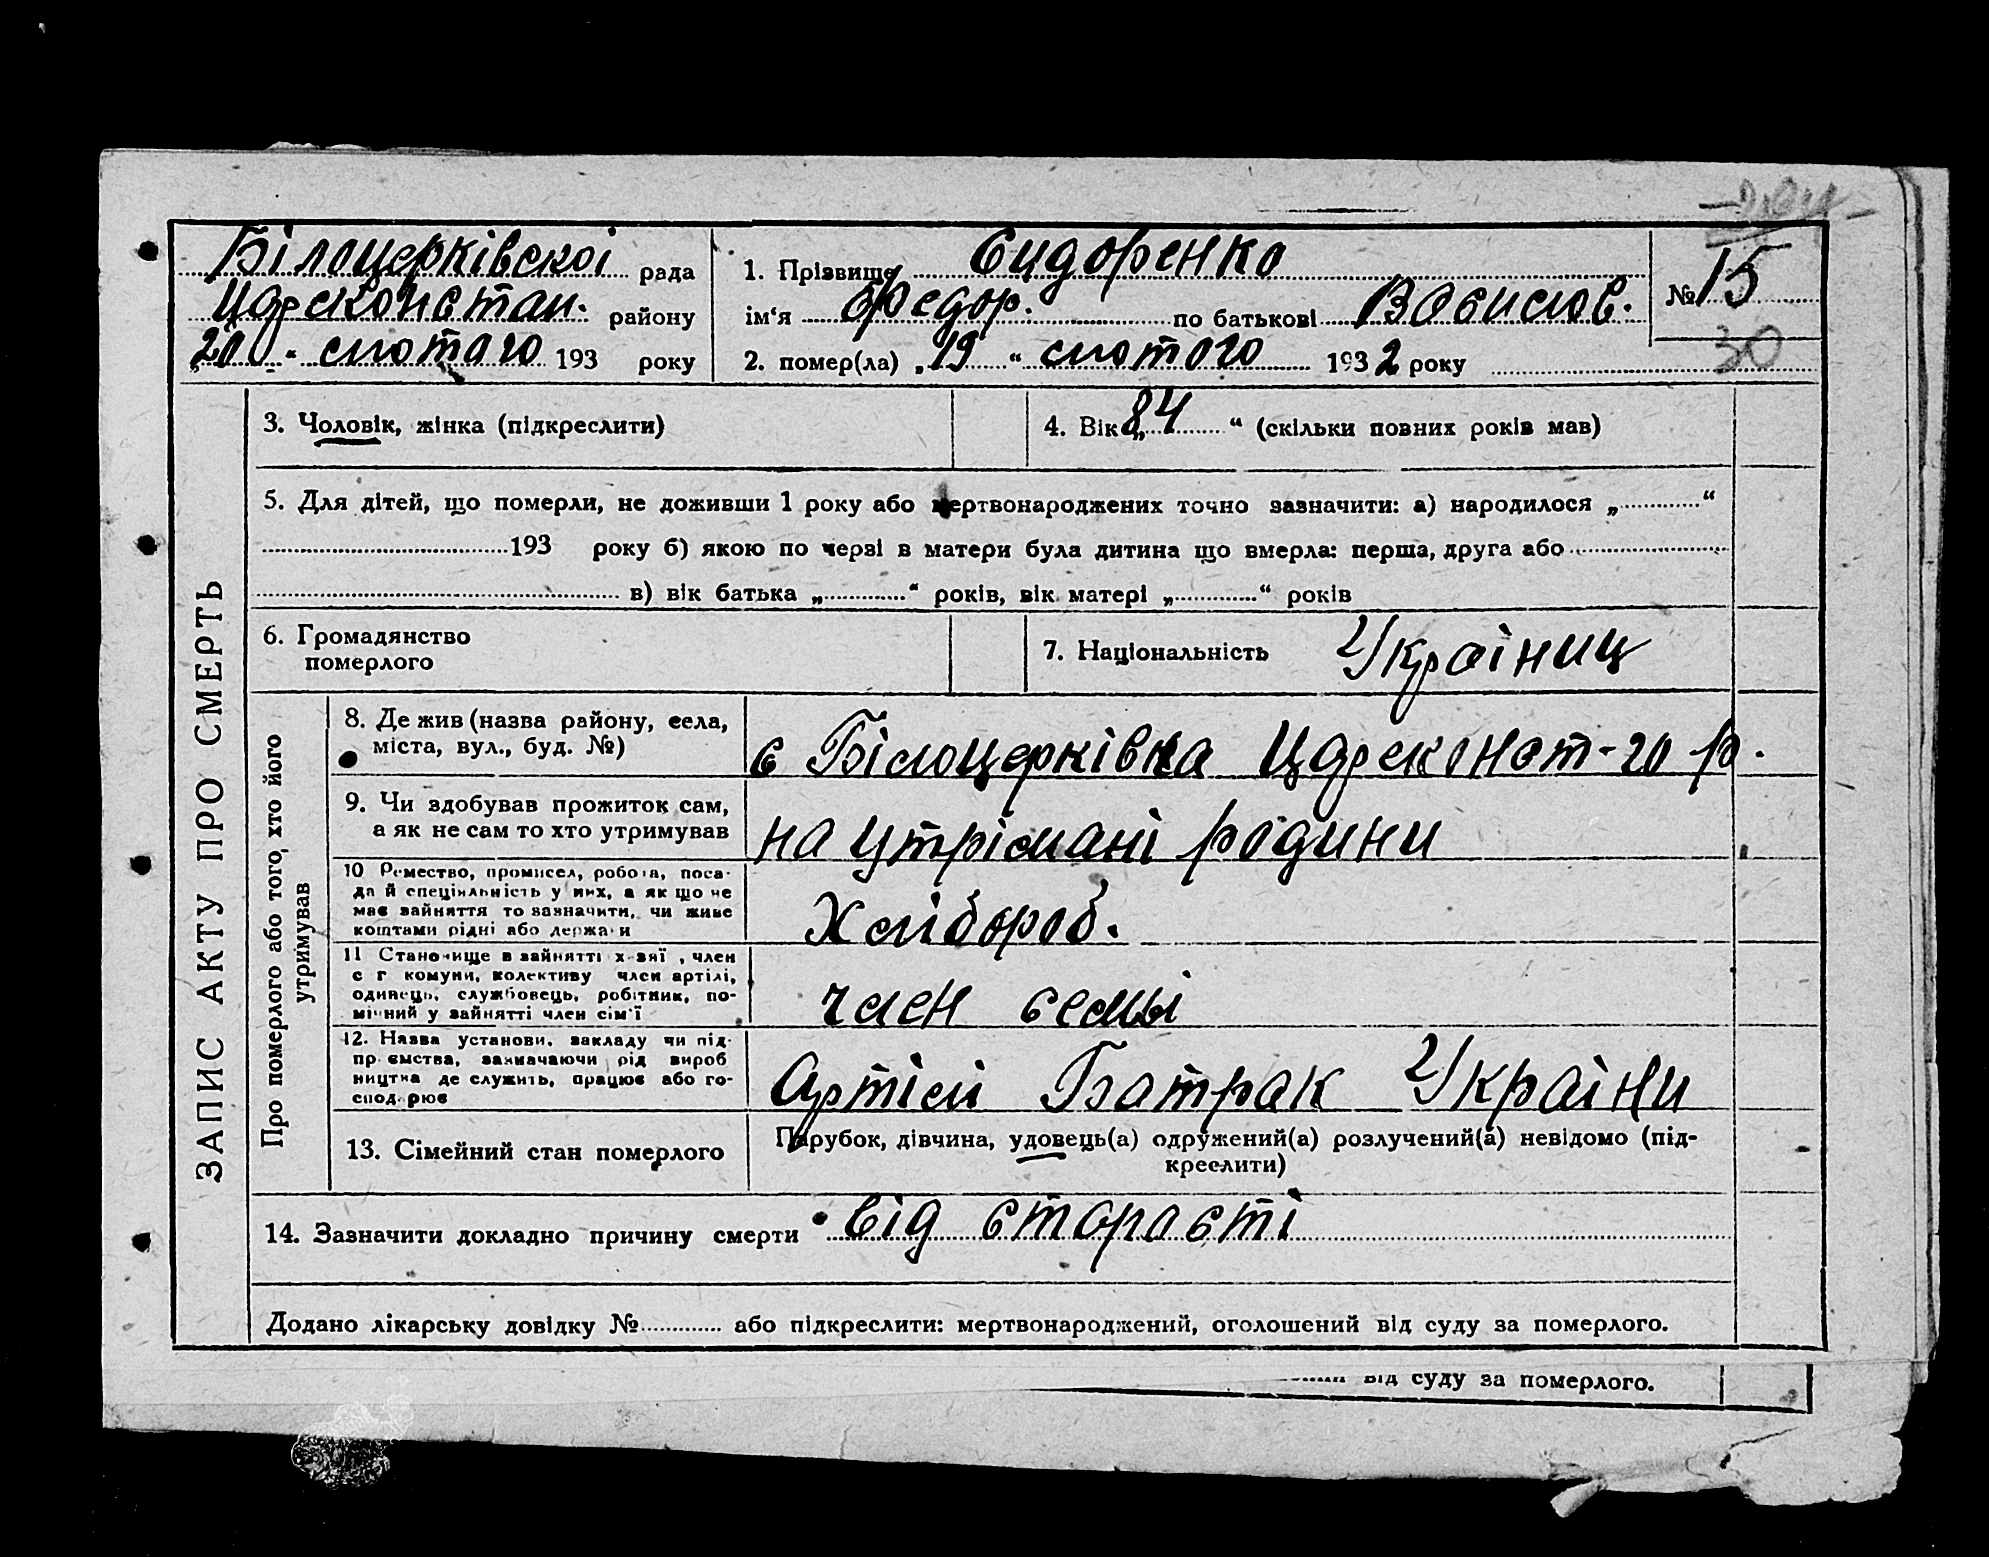 Білоцерківської рада
Цареконстан. району
„20“ лютого 193 року
1. Прізвище Сидоренко
ім‘я Федор. по батькові Василов.
2. помер(ла) „19“ лютого 1932 року
№ 15
30
ЗАПИС АКТУ ПРО СМЕРТЬ
3. Чоловік, жінка (підкреслити)
4. Вік „84“ (скільки повних років мав)
5. Для дітей, що померли, не доживши 1 року або мертвонароджених точно зазначити: а) народилося „ “
193 року б) якою по черзі в матери була дитина що вмерла: перша, друга або
в) вік батька „ “ років, вік матері „ “ років
6. Громадянство
померлого
7. Національність Україниц
Про померлого або того, хто його
утримував
8. Де жив (назва району, села,
міста, вул., буд. №)
с Білоцерківка Цареконст-го р.
9. Чи здобував прожиток сам,
а як не сам то хто утримував
на утрімані родини
10 Ремество, промисел, робота, поса-
да й спеціяльність у них, а як що не
має зайняття то зазначити, чи живе
коштами рідні або держави
Хлібороб.
11 Становище в зайнятті х-вяї , член
с г комуни, колективу член артілі,
одинець, службовець, робітник, по-
мічний у зайнятті член сім'ї
член семьі
12. Назва установи, закладу чи під-
пр ємства, зазначаючи рід вироб
ництва де служить, працює або го-
спод рює
Артілі Батрак України
13. Сімейний стан померлого
Парубок, дівчина, удовець(а) одружений(а) розлучений(а) невідомо (під-
креслити)
14. Зазначити докладно причину смерти від старості
Додано лікарську довідку № або підкреслити: мертвонароджений, оголошений від суду за померлого.
від суду за померлого.